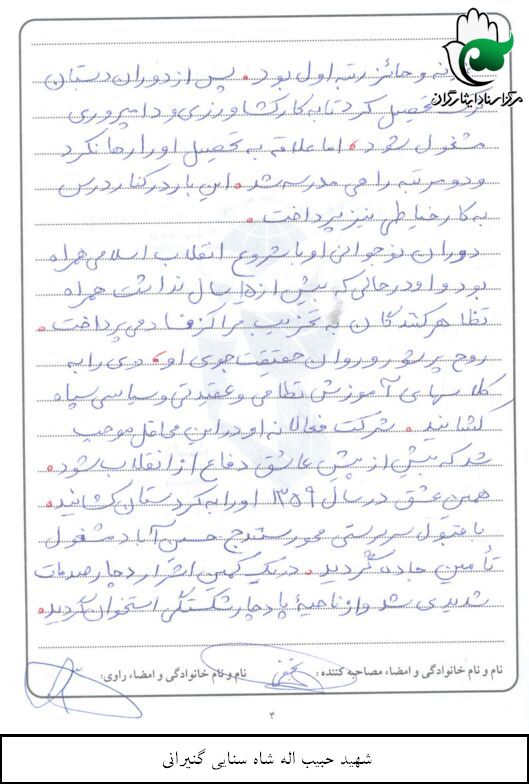 مرکز اسناد ایثارگران
و حائز رتبه اول بود. پس از دوران دبستان
ترک تحصیل کرد تا به کار کشاورزی و دامپروری
مشغول شود، اما علاقه به تحصیل او را رها نکرد
و دو مرتبه راهی مدرسه شد. این بار در کنار درس
به کار خیاطی نیز پرداخت.
دوران نوجوانی او با شروع انقلاب اسلامی همراه
بود و او در حالی که بیش از ۱۵ سال نداشت همراه
تظاهرکنندگان به تخریب مراکز فساد می پرداخت.
روح پرشور و روان حقیقت جوی او، وی را به
کلاسهای آموزش نظامی و عقیدتی و سیاسی سپاه
کشانید. شرکت فعالانه او در این محافل موجب
شد که بیش از پیش عاشق دفاع از انقلاب شود.
همین عشق در سال ۱۳۵۹ او را به کردستان کشانید.
با قبول سرپرستی محور سنندج حسین آباد مشغول
تأمین جاده گردید. در یک کمین اشرار دچار صدمات
شدیدی شد و از ناحیهٔ پا دچار شکستگی استخوان گردید.
نام و نام خانوادگی و امضاء مصاحبه کننده: نام و نام خانوادگی و امضاء راوی:
۴
شهید حبیب اله شاه سنایی گنیرانی